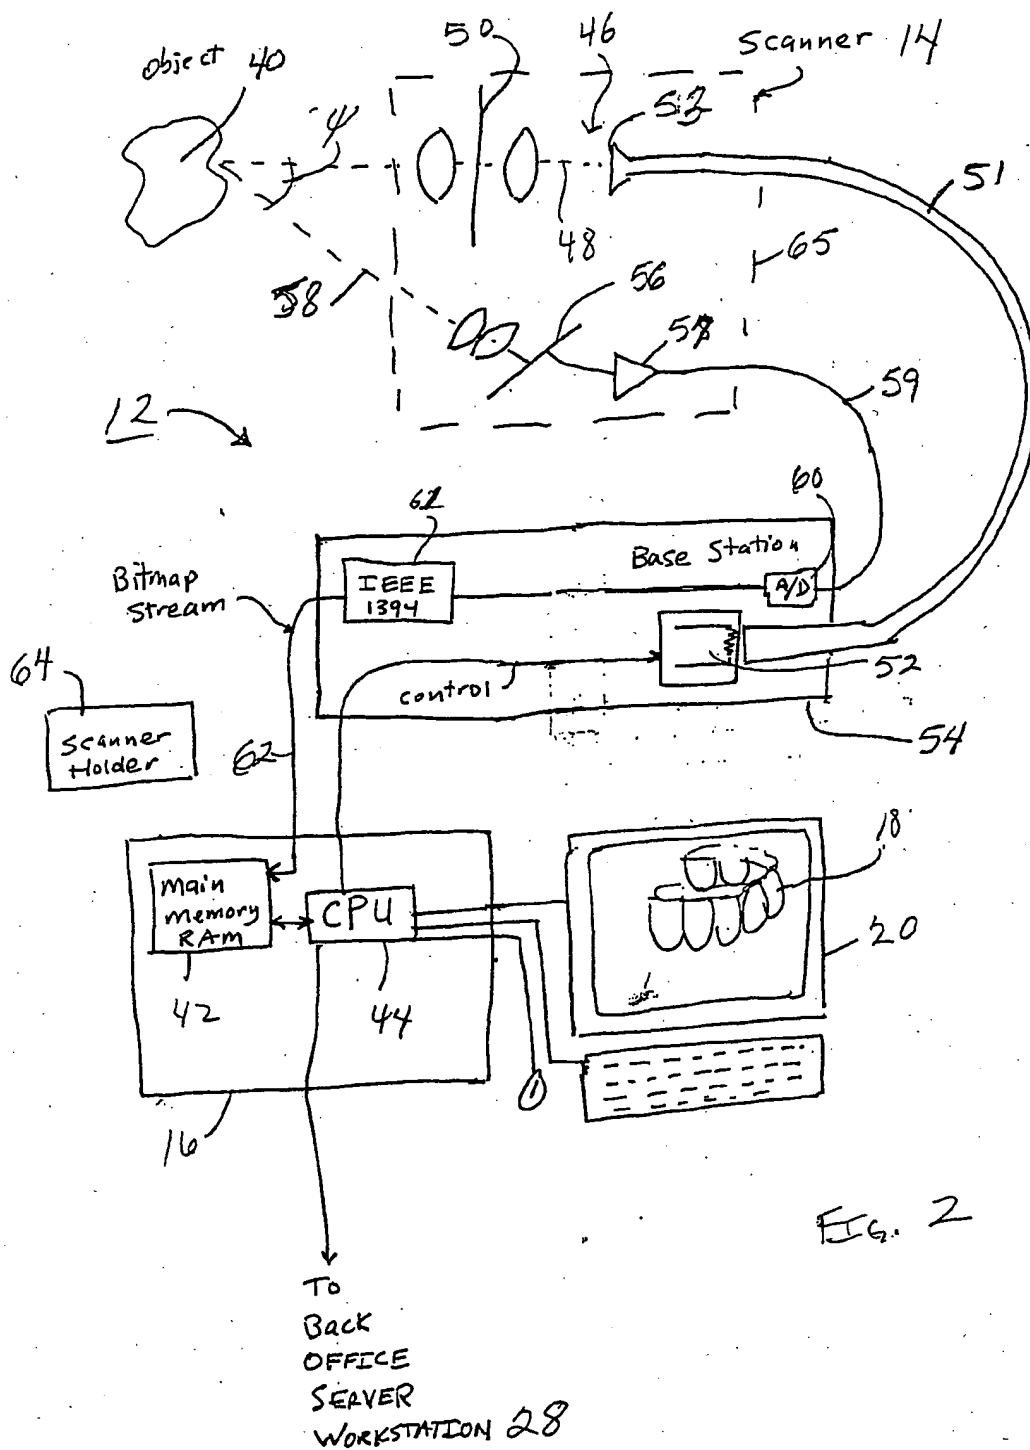 50
46
Scanner 14
Object 40
53
51
48
65
56
58
59
12
60
61
Base Station
IEEE
1394
A/D
Bitmap
Stream
52
control
64
54
Scanner
Holder
62
18
Main
Memory
RAM
CPU
20
42
44
16
FIG. 2
To
Back
OFFICE
SERVER
WORKSTATION 28